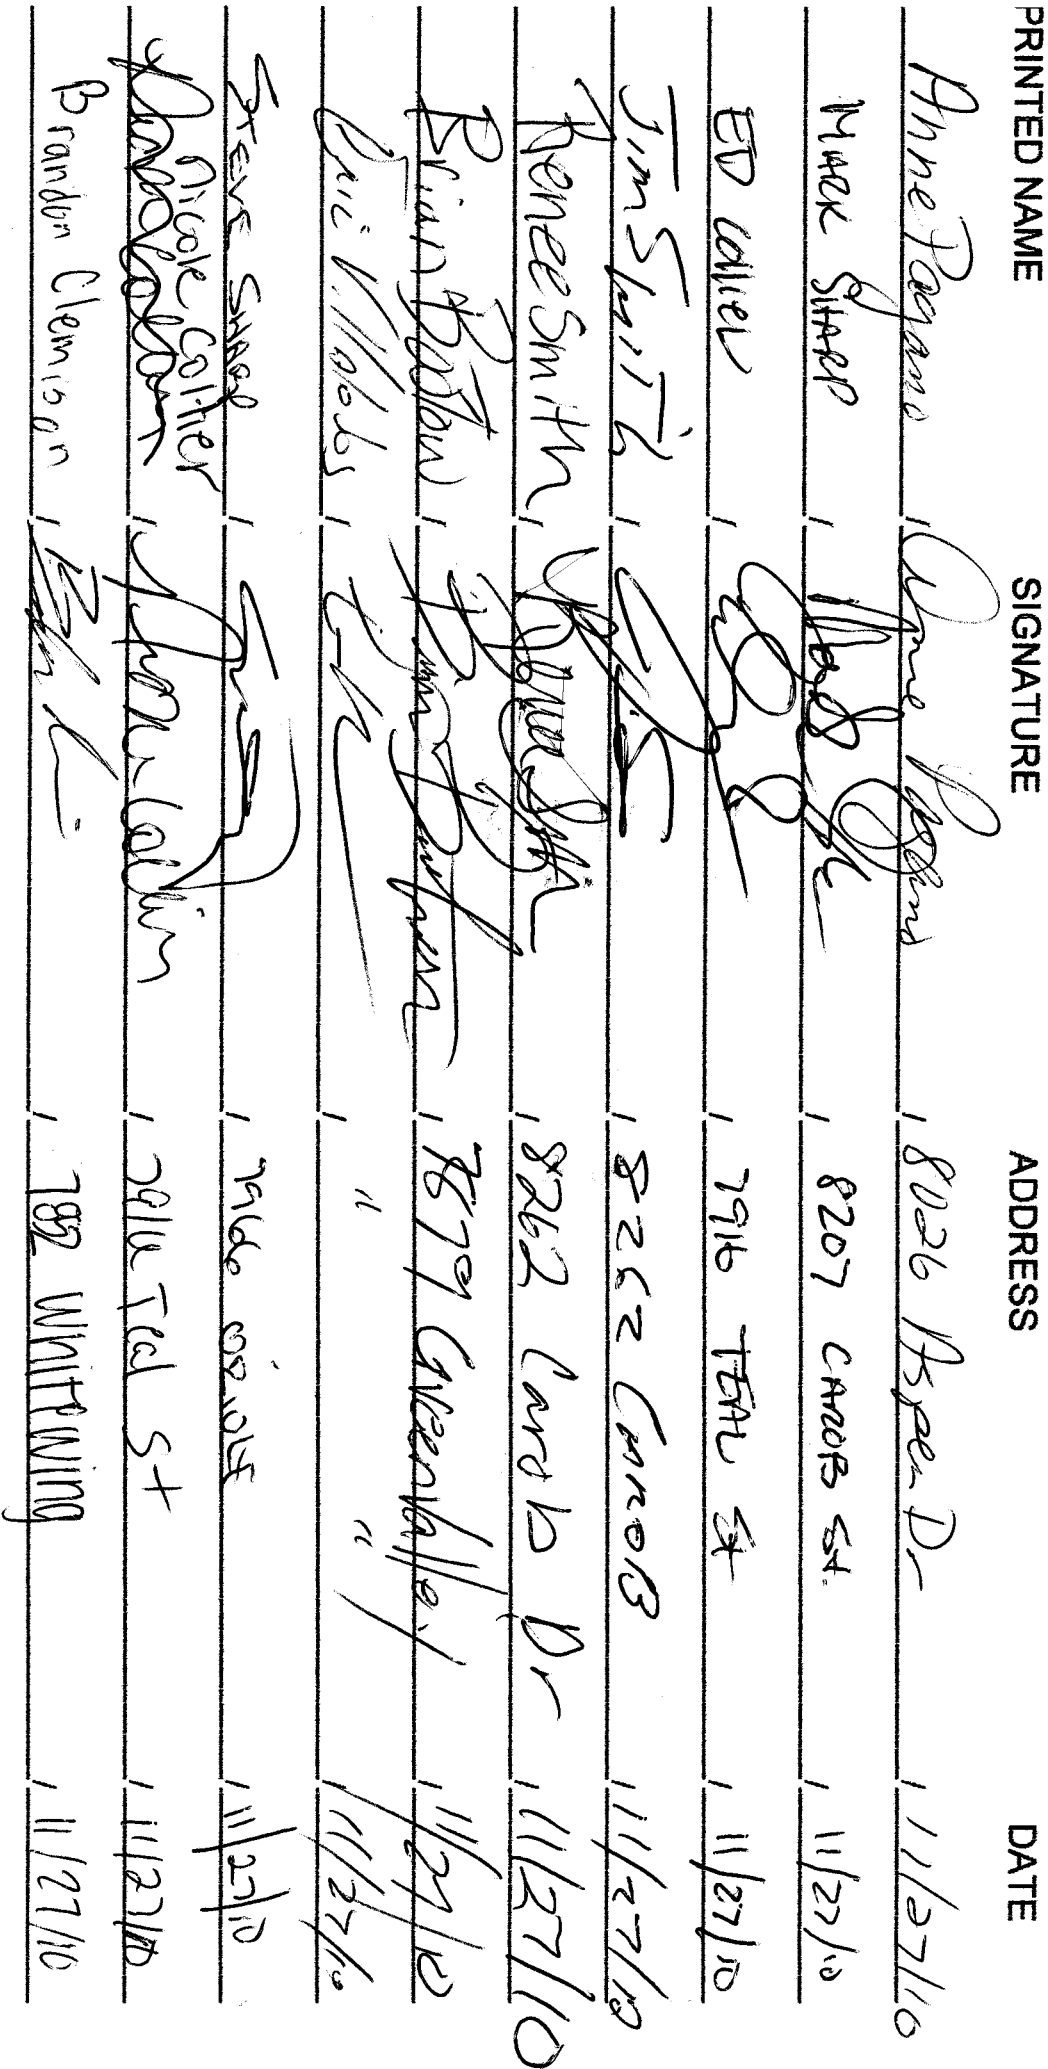 PRINTED NAME SIGNATURE ADDRESS DATE
Anne Pagano Anne Pagano 8026 Aspen Dr 11/27/10
MARK SHARP 8207 CAROB St. 11/27/10
ED Collier 7916 TEAL St 11/27/10
Jim Smith 8262 CAROB 11/27/10
Renee Smith Renee Smith 8262 Carob Dr 11/27/10
Brian 7679 Greenvalley 11/27/10
Eric " " 11/27/10
STEVE SHARP 11/27/10
Nicole Collier Nicole Collier 7916 Teal St 11/27/10
Brandon Clemison Whitewing 11/27/10